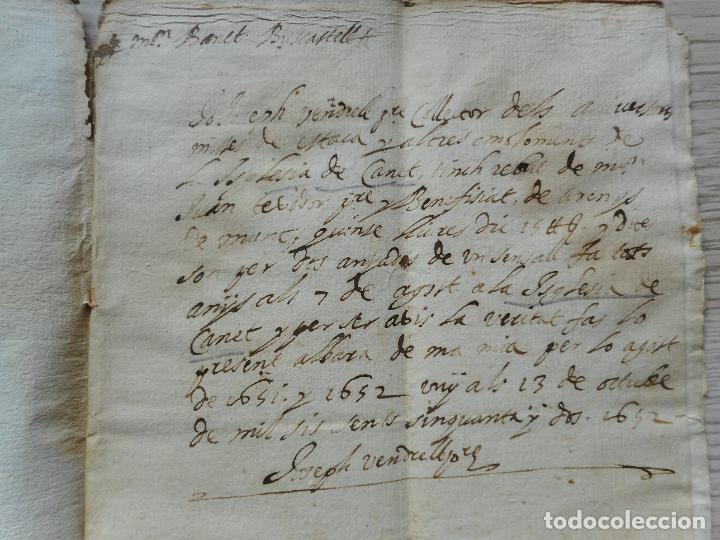 mᵒ Banet Buscastell
Jo Joseph vendrell pre Collector dels aniversaris
mises de estaca y altres emoloments de
la Isglesia de Canet, tinch rebut de moⁿ
Juan texidor pre y Benefisiat, de Arenys
de munt, quinse lliures dic 15 ll y dites
son per dos anyades de un sensall fa tots
anys als 7 de agost a la Isglesia de
Canet y per ser axis la veritat fas lo
present albara de ma mia per lo agost
de 1651. y 1652 vuy als 13 de octubre
de mil sis sents sinquanta y dos. 1652
Joseph vendrell pre
todocoleccion.net